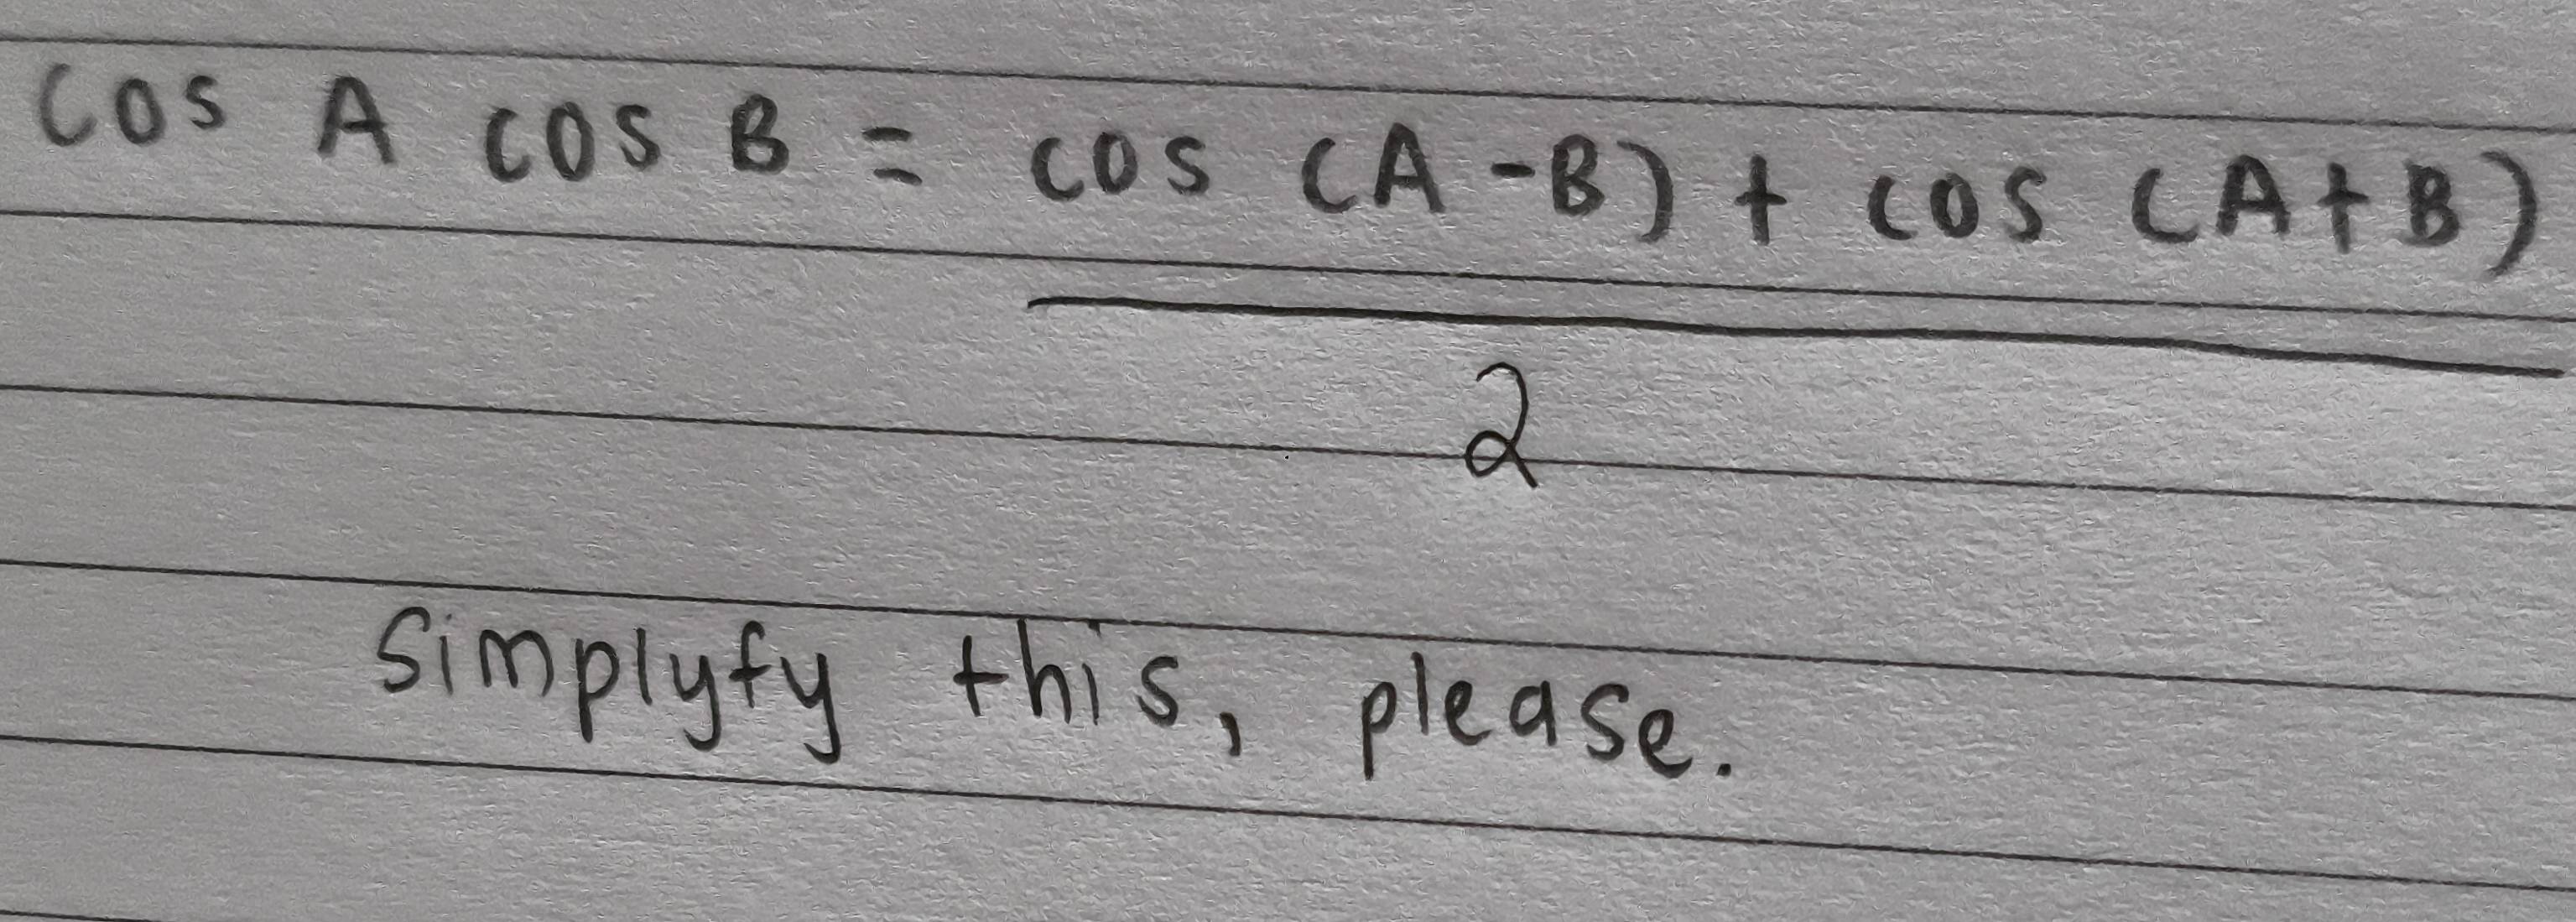 cos A cos B = cos (A-B) + cos (A+B)
2
simplyfy this, please.